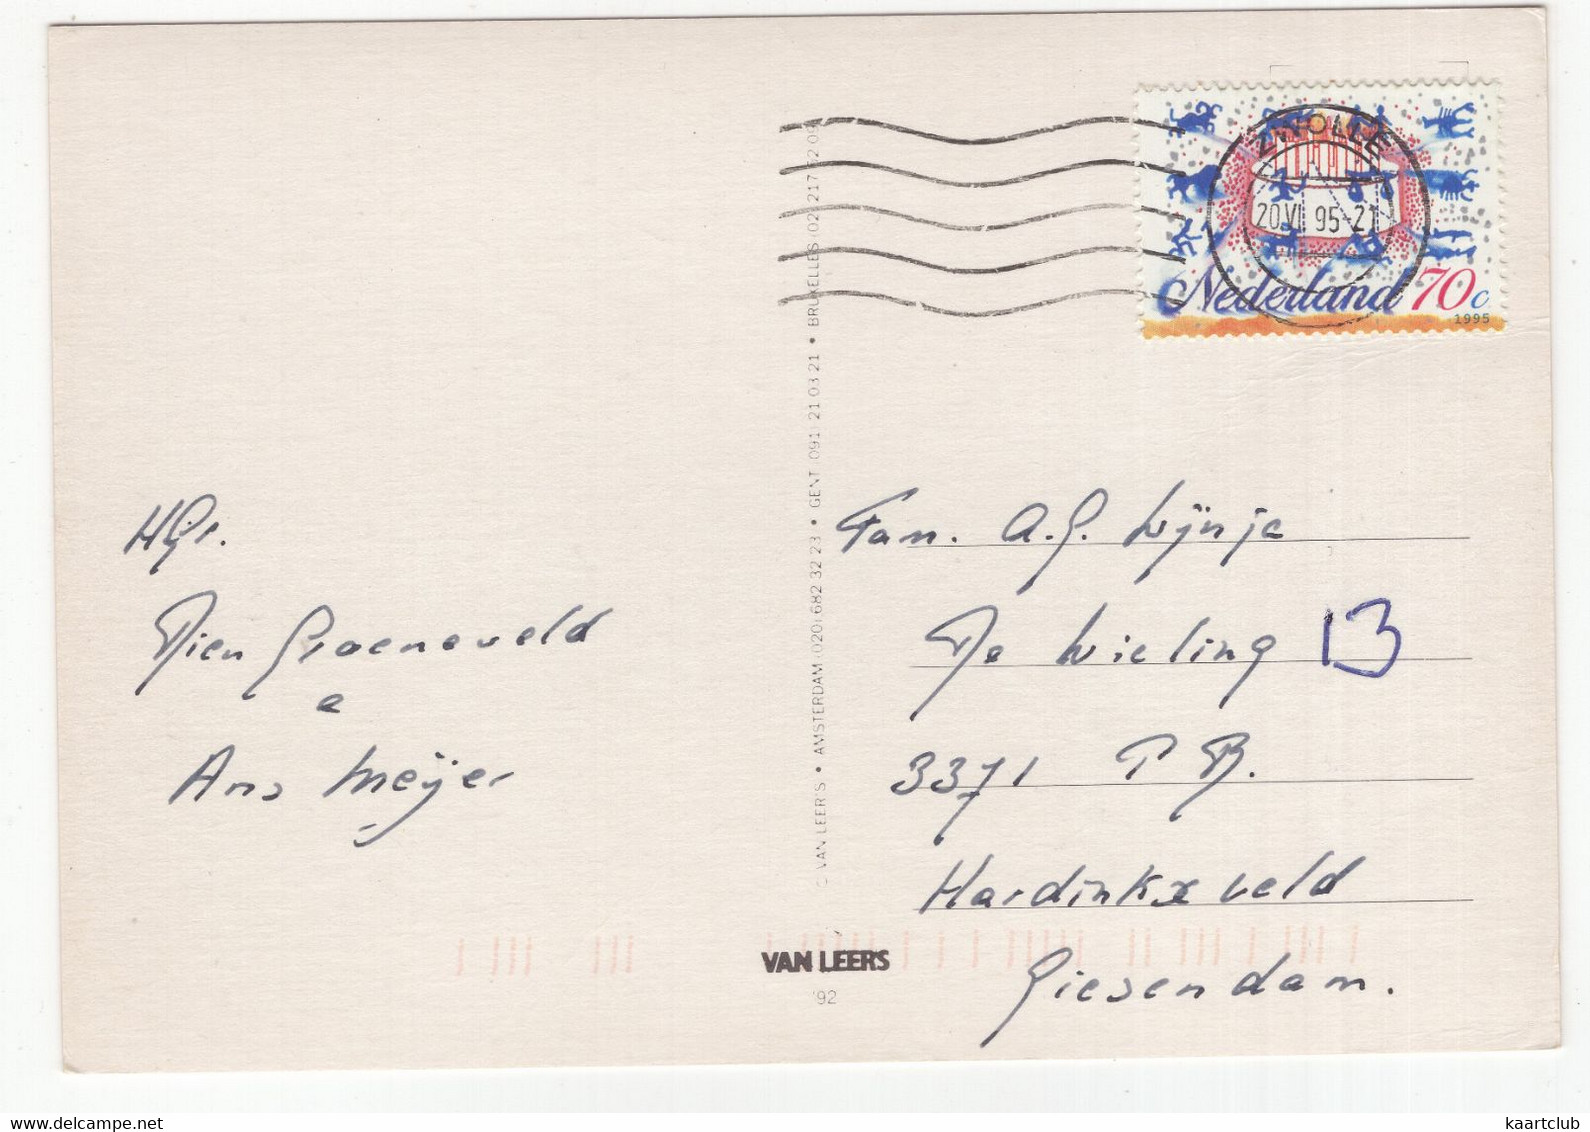 ZWOLLE
20 VI 95-21
Nederland 70c
1995
Hgr.
Dien Groeneveld
e
Ans Meijer
© VAN LEER'S • AMSTERDAM (020) 682 32 23 • GENT 091 21 03 21 • BRUXELLES (02) 217 52 09
Fam. A.G. Wijnja
De Wieling 13
3371 PB.
Hardinkxveld
Giesendam.
VAN LEERS
'92
www.delcampe.net
kaartclub